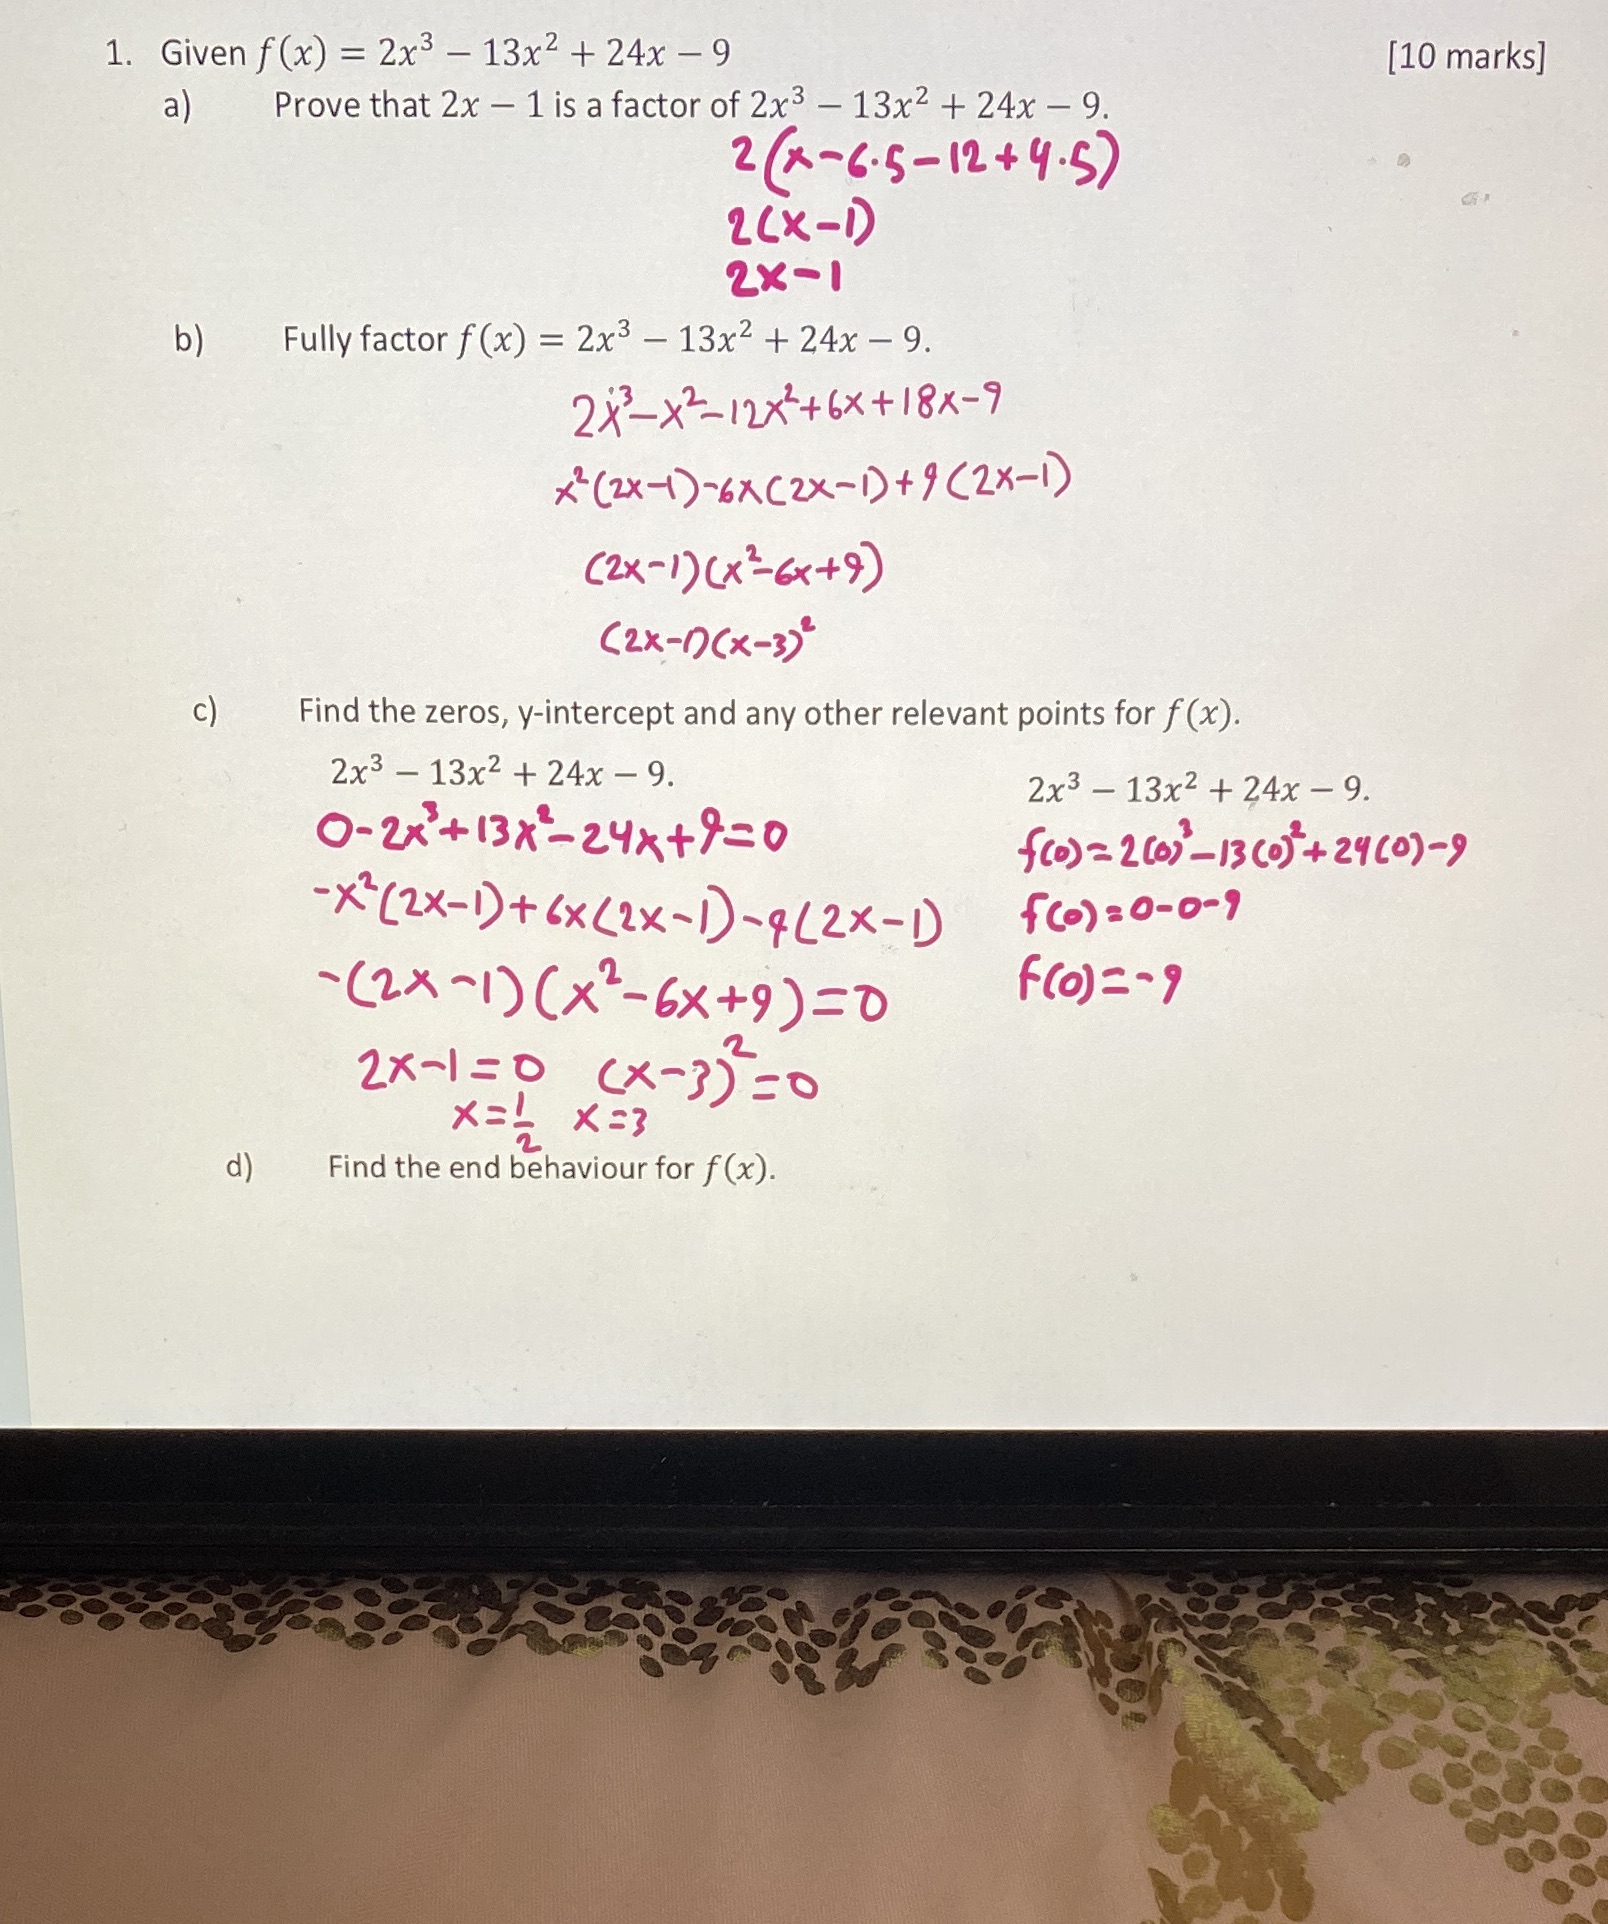 1. Given f(x) = 2x³ − 13x² + 24x − 9 [10 marks]
a) Prove that 2x − 1 is a factor of 2x³ − 13x² + 24x − 9.
2(x-6.5-12+4.5)
2(x-1)
2x-1
b) Fully factor f(x) = 2x³ − 13x² + 24x − 9.
2x³-x²-12x²+6x+18x-9
x²(2x-1)-6x(2x-1)+9(2x-1)
(2x-1)(x²-6x+9)
(2x-1)(x-3)²
c) Find the zeros, y-intercept and any other relevant points for f(x).
2x³ − 13x² + 24x − 9.
0-2x³+13x²-24x+9=0
-x²(2x-1)+6x(2x-1)-9(2x-1)
-(2x-1)(x²-6x+9)=0
2x-1=0 (x-3)²=0
x=1/2 x=3
2x³ − 13x² + 24x − 9.
f(0)=2(0)³-13(0)²+24(0)-9
f(0)=0-0-9
f(0)=-9
d) Find the end behaviour for f(x).